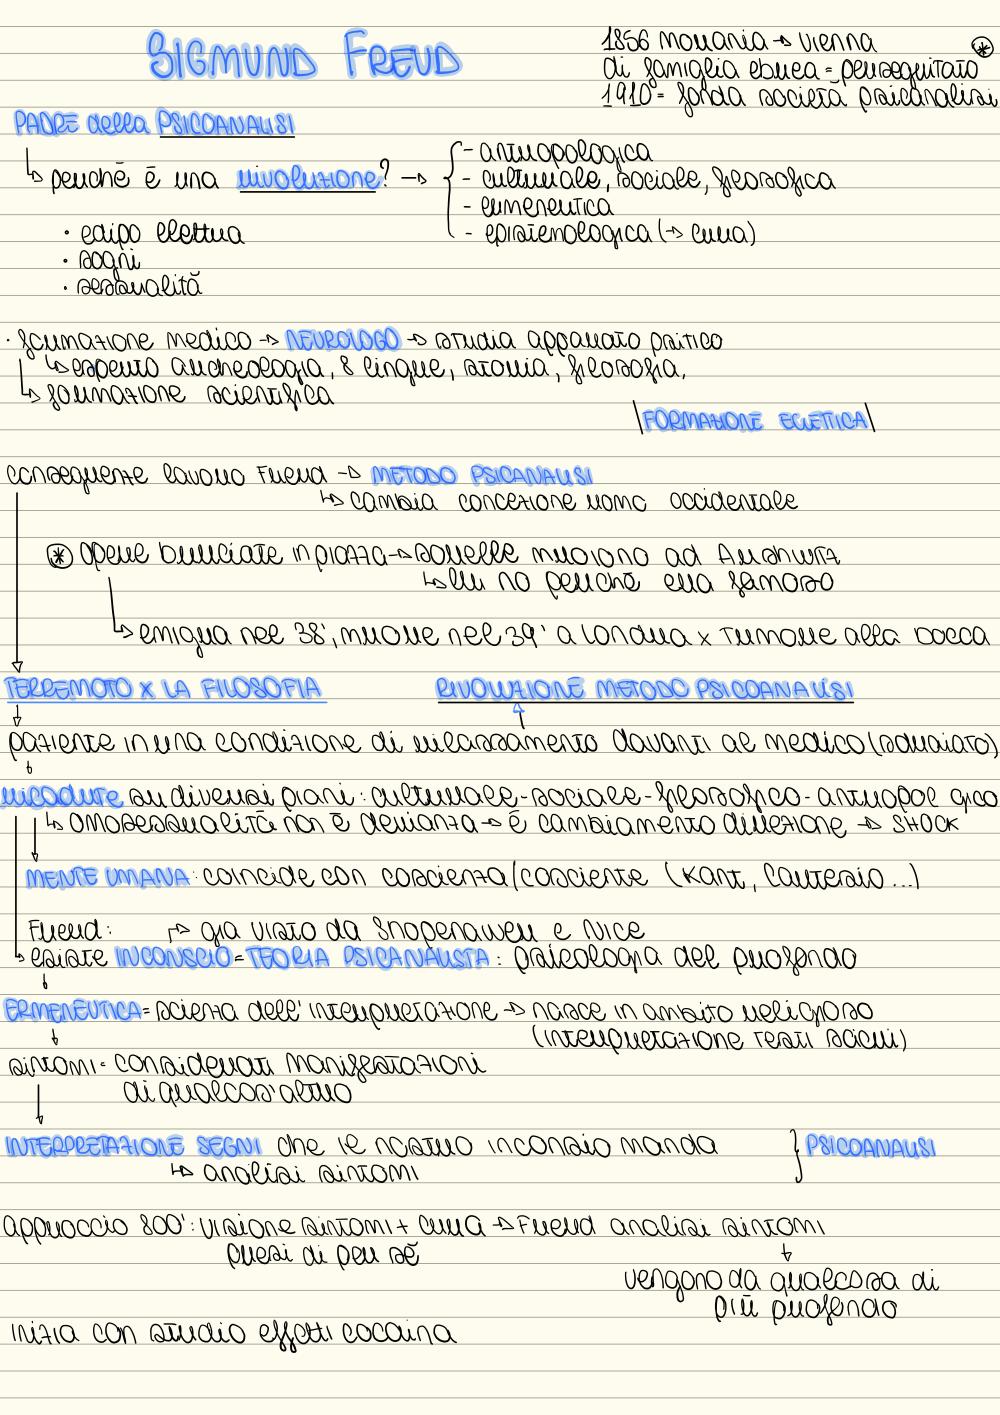 SIGMUND FREUD
1856 moravia → vienna
di famiglia ebrea = perseguitato
1910 = fonda società psicanalisi
PADRE della PSICOANALISI
↳ perché è una rivoluzione? →
- antropologica
- culturale, sociale, filosofica
- ermeneutica
- epistemologica (→ cura)
• edipo elettra
• sogni
• sessualità
• formazione medico → NEUROLOGO → studia apparato psitico
↳ esperto archeologia, 8 lingue, storia, filosofia,
↳ formazione scientifica
|FORMAZIONE ECLETTICA|
conseguente lavoro Freud → METODO PSICANALISI
↳ cambia concezione uomo occidentale
* opere bruciate in piazza → sorelle muoiono ad Aushwitz
↳ lui no perché era famoso
↳ emigra nel 38', muore nel 39' a Londra x tumore alla bocca
TERREMOTO x LA FILOSOFIA
RIVOLUZIONE METODO PSICOANALISI
paziente in una condizione di rilassamento davanti al medico (sdraiato)
ricadute su diversi piani: culturale-sociale-filosofico-antropol gico
↳ omosessualità non è devianza → è cambiamento direzione → SHOCK
MENTE UMANA: coincide con coscienza/cosciente (Kant, Cartesio ...)
Freud: ↱ gia visto da Shopenawer e Nice
esiste INCONSCIO = TEORIA PSICANALISTA: psicologia del profondo
ERMENEUTICA = scienza dell'interpretazione → nasce in ambito religioso
(interpretazione testi sacri)
sintomi = considerati manifestazioni
di qualcos'altro
INTERPRETAZIONE SEGNI che il nostro inconsio manda } PSICOANALISI
↳ analisi sintomi
approccio 800': visione sintomi + cura → Freud analisi sintomi
presi di per sé
vengono da qualcosa di
più profondo
inizia con studio effetti cocaina